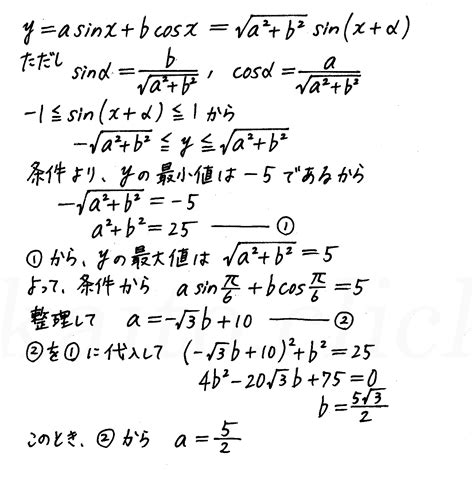 y=a sinx+b cosx=√(a²+b²) sin(x+α)
ただし sinα=b/√(a²+b²), cosα=a/√(a²+b²)
-1≦sin(x+α)≦1から
-√(a²+b²)≦y≦√(a²+b²)
条件より、yの最小値は-5であるから
-√(a²+b²)=-5
a²+b²=25 ——— ①
①から、yの最大値は √(a²+b²)=5
よって、条件から a sin π/6+b cos π/6=5
整理して a=-√3b+10 ——— ②
②を①に代入して (-√3b+10)²+b²=25
4b²-20√3b+75=0
b=5√3/2
このとき、②から a=5/2